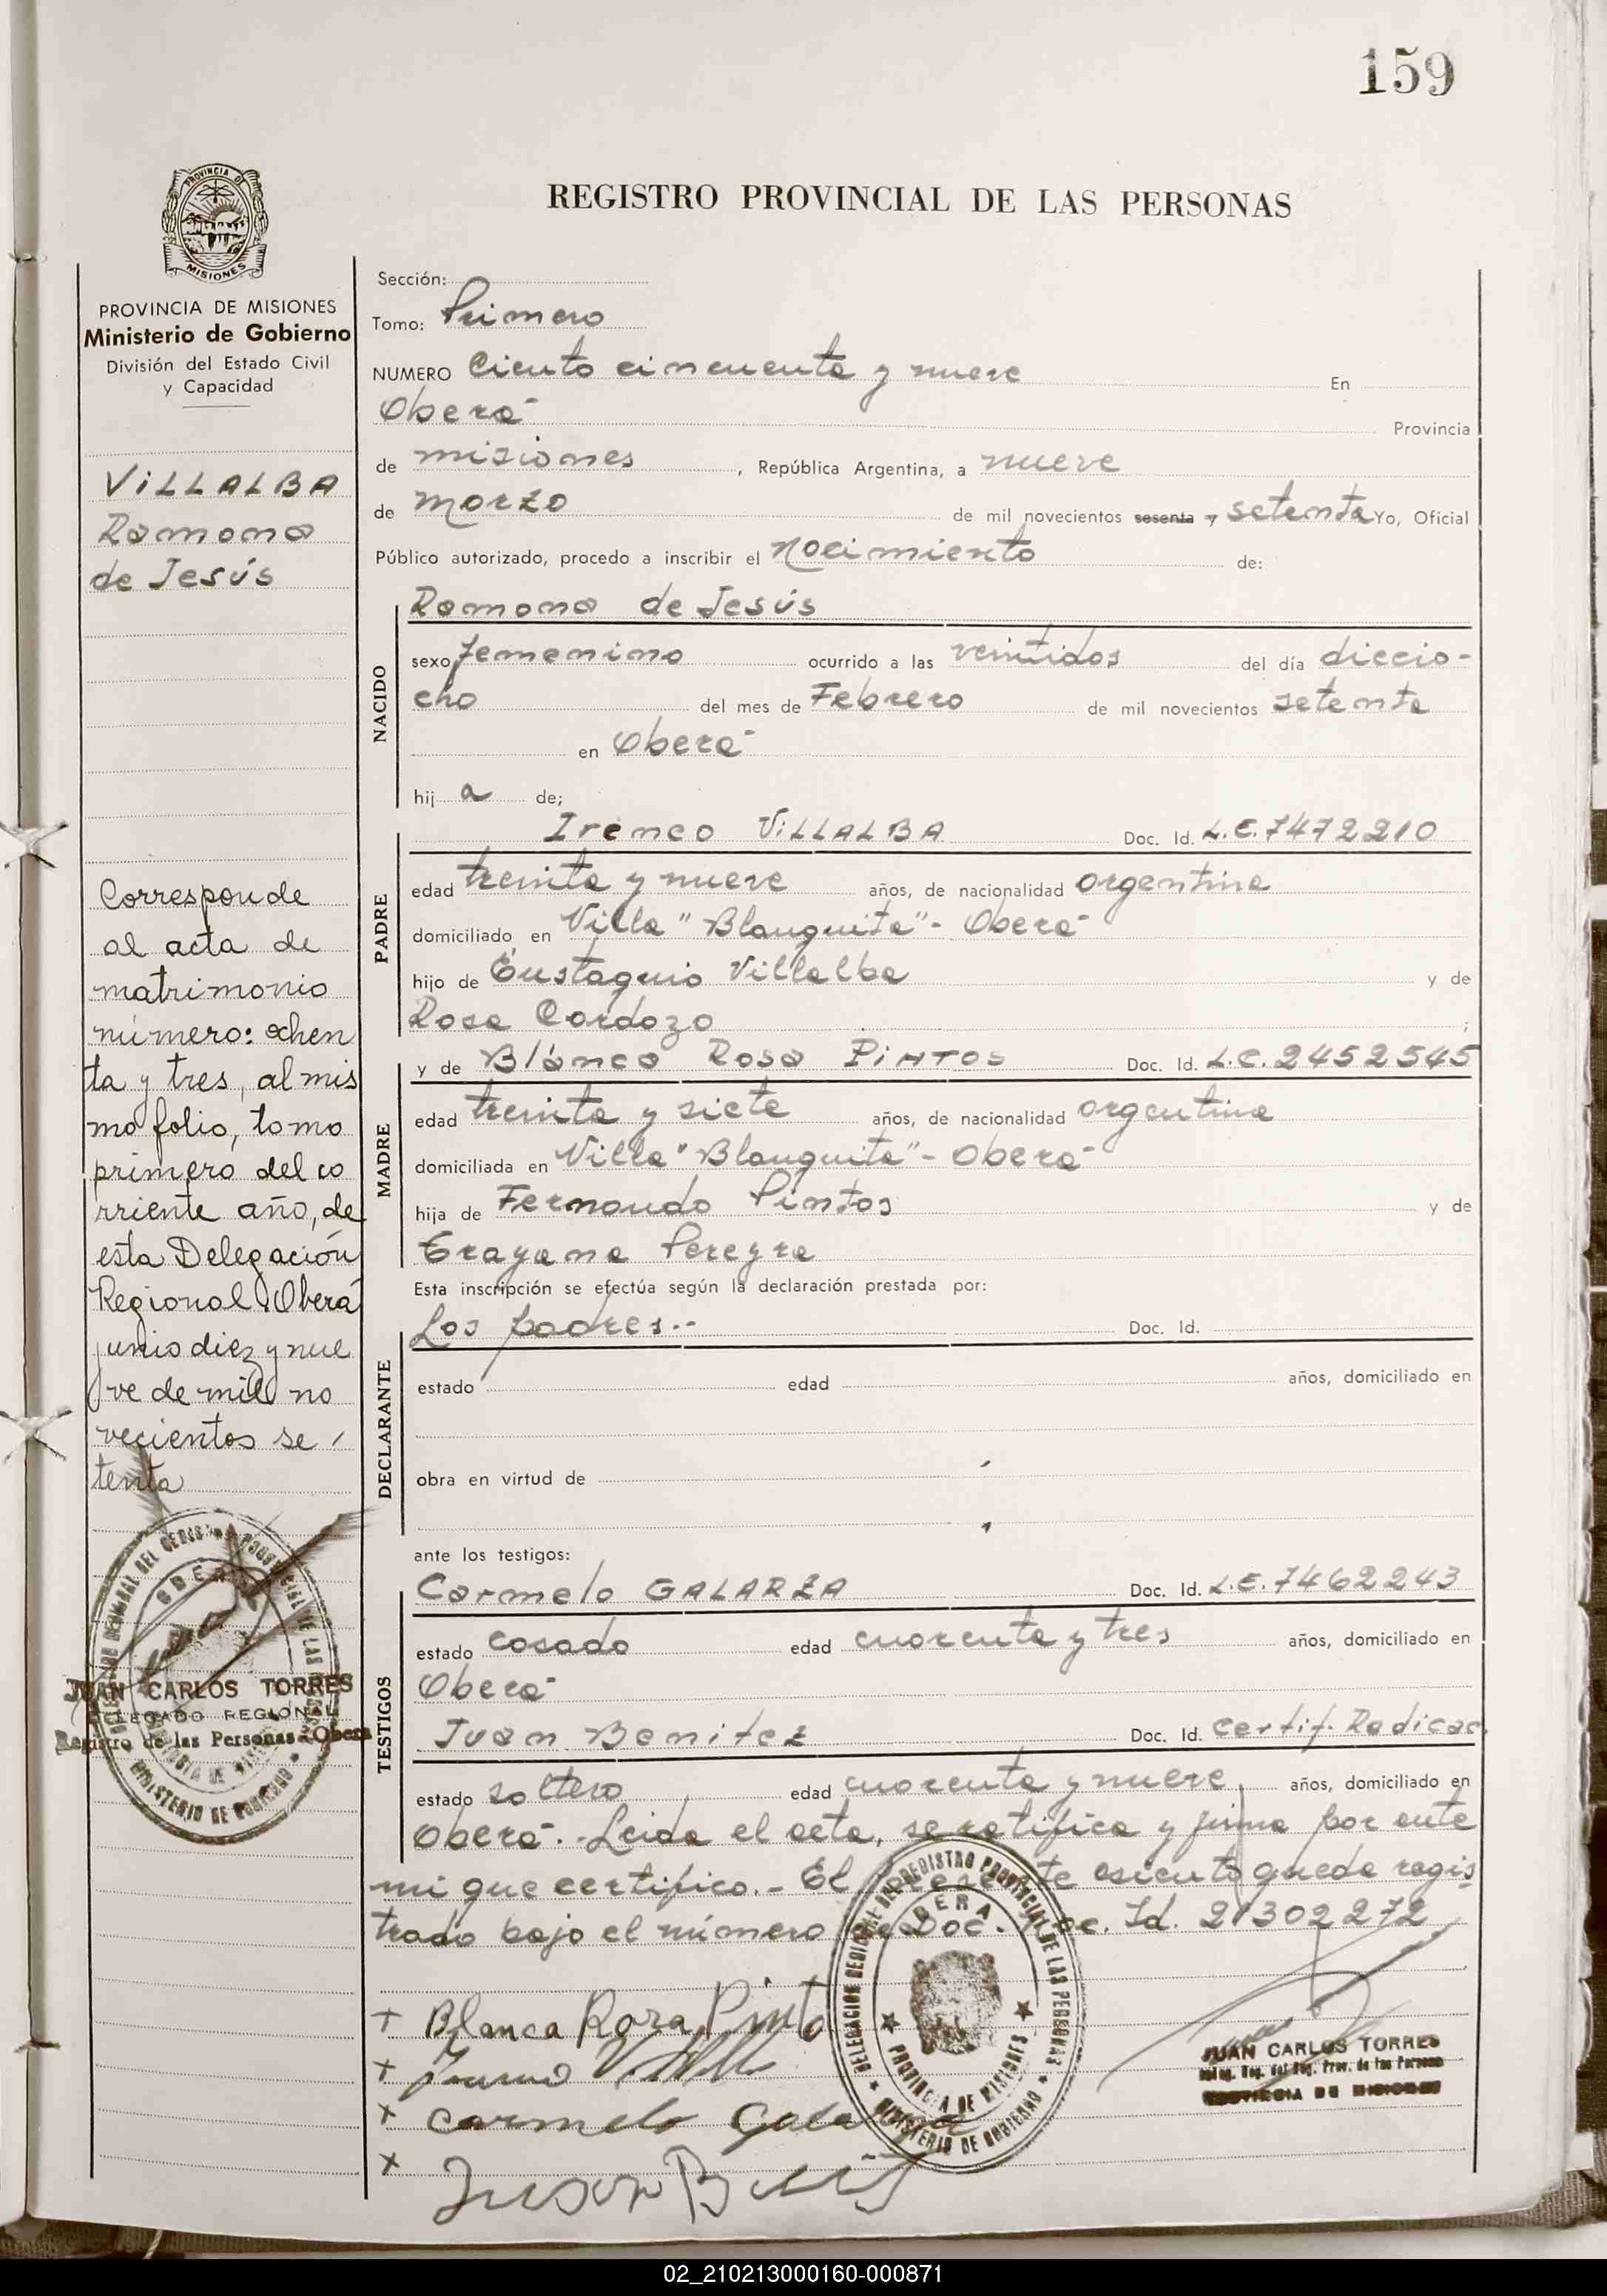 159
PROVINCIA DE
MISIONES
REGISTRO PROVINCIAL DE LAS PERSONAS
PROVINCIA DE MISIONES
Ministerio de Gobierno
División del Estado Civil
y Capacidad
VILLALBA
Ramona
de Jesús
Corresponde
al acta de
matrimonio
número: ochen
ta y tres, al mis
mo folio, tomo
primero del co
rriente año, de
esta Delegación
Regional Oberá
junio diez y nue
ve de mil no
vecientos se
tenta
JUAN CARLOS TORRES
DELEGADO REGIONAL
Registro de las Personas - Obera
Sección:
Tomo: Primero
NUMERO Ciento cincuenta y nueve En
Oberá Provincia
de misiones, República Argentina, a nueve
de marzo de mil novecientos sesenta y setenta Yo, Oficial
Público autorizado, procedo a inscribir el nacimiento de:
NACIDO
Ramona de Jesús
sexo femenino ocurrido a las veintidos del día diecio-
cho del mes de Febrero de mil novecientos setenta
en Oberá
hij a de;
PADRE
Ireneo VILLALBA Doc. Id. L.E. 7472210
edad treinta y nueve años, de nacionalidad argentina
domiciliado en Villa "Blanquita" - Oberá
hijo de Eustaquio Villalba y de
Rosa Cardozo ;
MADRE
y de Blanca Rosa PINTOS Doc. Id. L.C. 2452545
edad treinta y siete años, de nacionalidad argentina
domiciliada en Villa "Blanquita" - Oberá
hija de Fernando Pintos y de
Pereyra
Esta inscripción se efectúa según la declaración prestada por:
DECLARANTE
Los padres.-- Doc. Id.
estado edad años, domiciliado en
obra en virtud de
ante los testigos:
TESTIGOS
Carmelo GALARZA Doc. Id. L.E. 7462243
estado casado edad cuarenta y tres años, domiciliado en
Oberá
Juan Benitez Doc. Id. Certif. Radicac
estado soltero edad cuarenta y nueve años, domiciliado en
Oberá.- Leida el acta, se ratifica y firma por ante
mi que certifico.- El presente asiento queda regis
trado bajo el número de Doc. Id. 21302272
+ Blanca Rosa Pinto
+ Villalba
+ Carmelo Galarza
+ Juan
DELEGACION REGIONAL DEL REGISTRO PROVINCIAL DE LAS PERSONAS
OBERA
PROVINCIA DE MISIONES
MINISTERIO DE GOBIERNO
JUAN CARLOS TORRES
PROVINCIA DE MISIONES
02_210213000160-000871